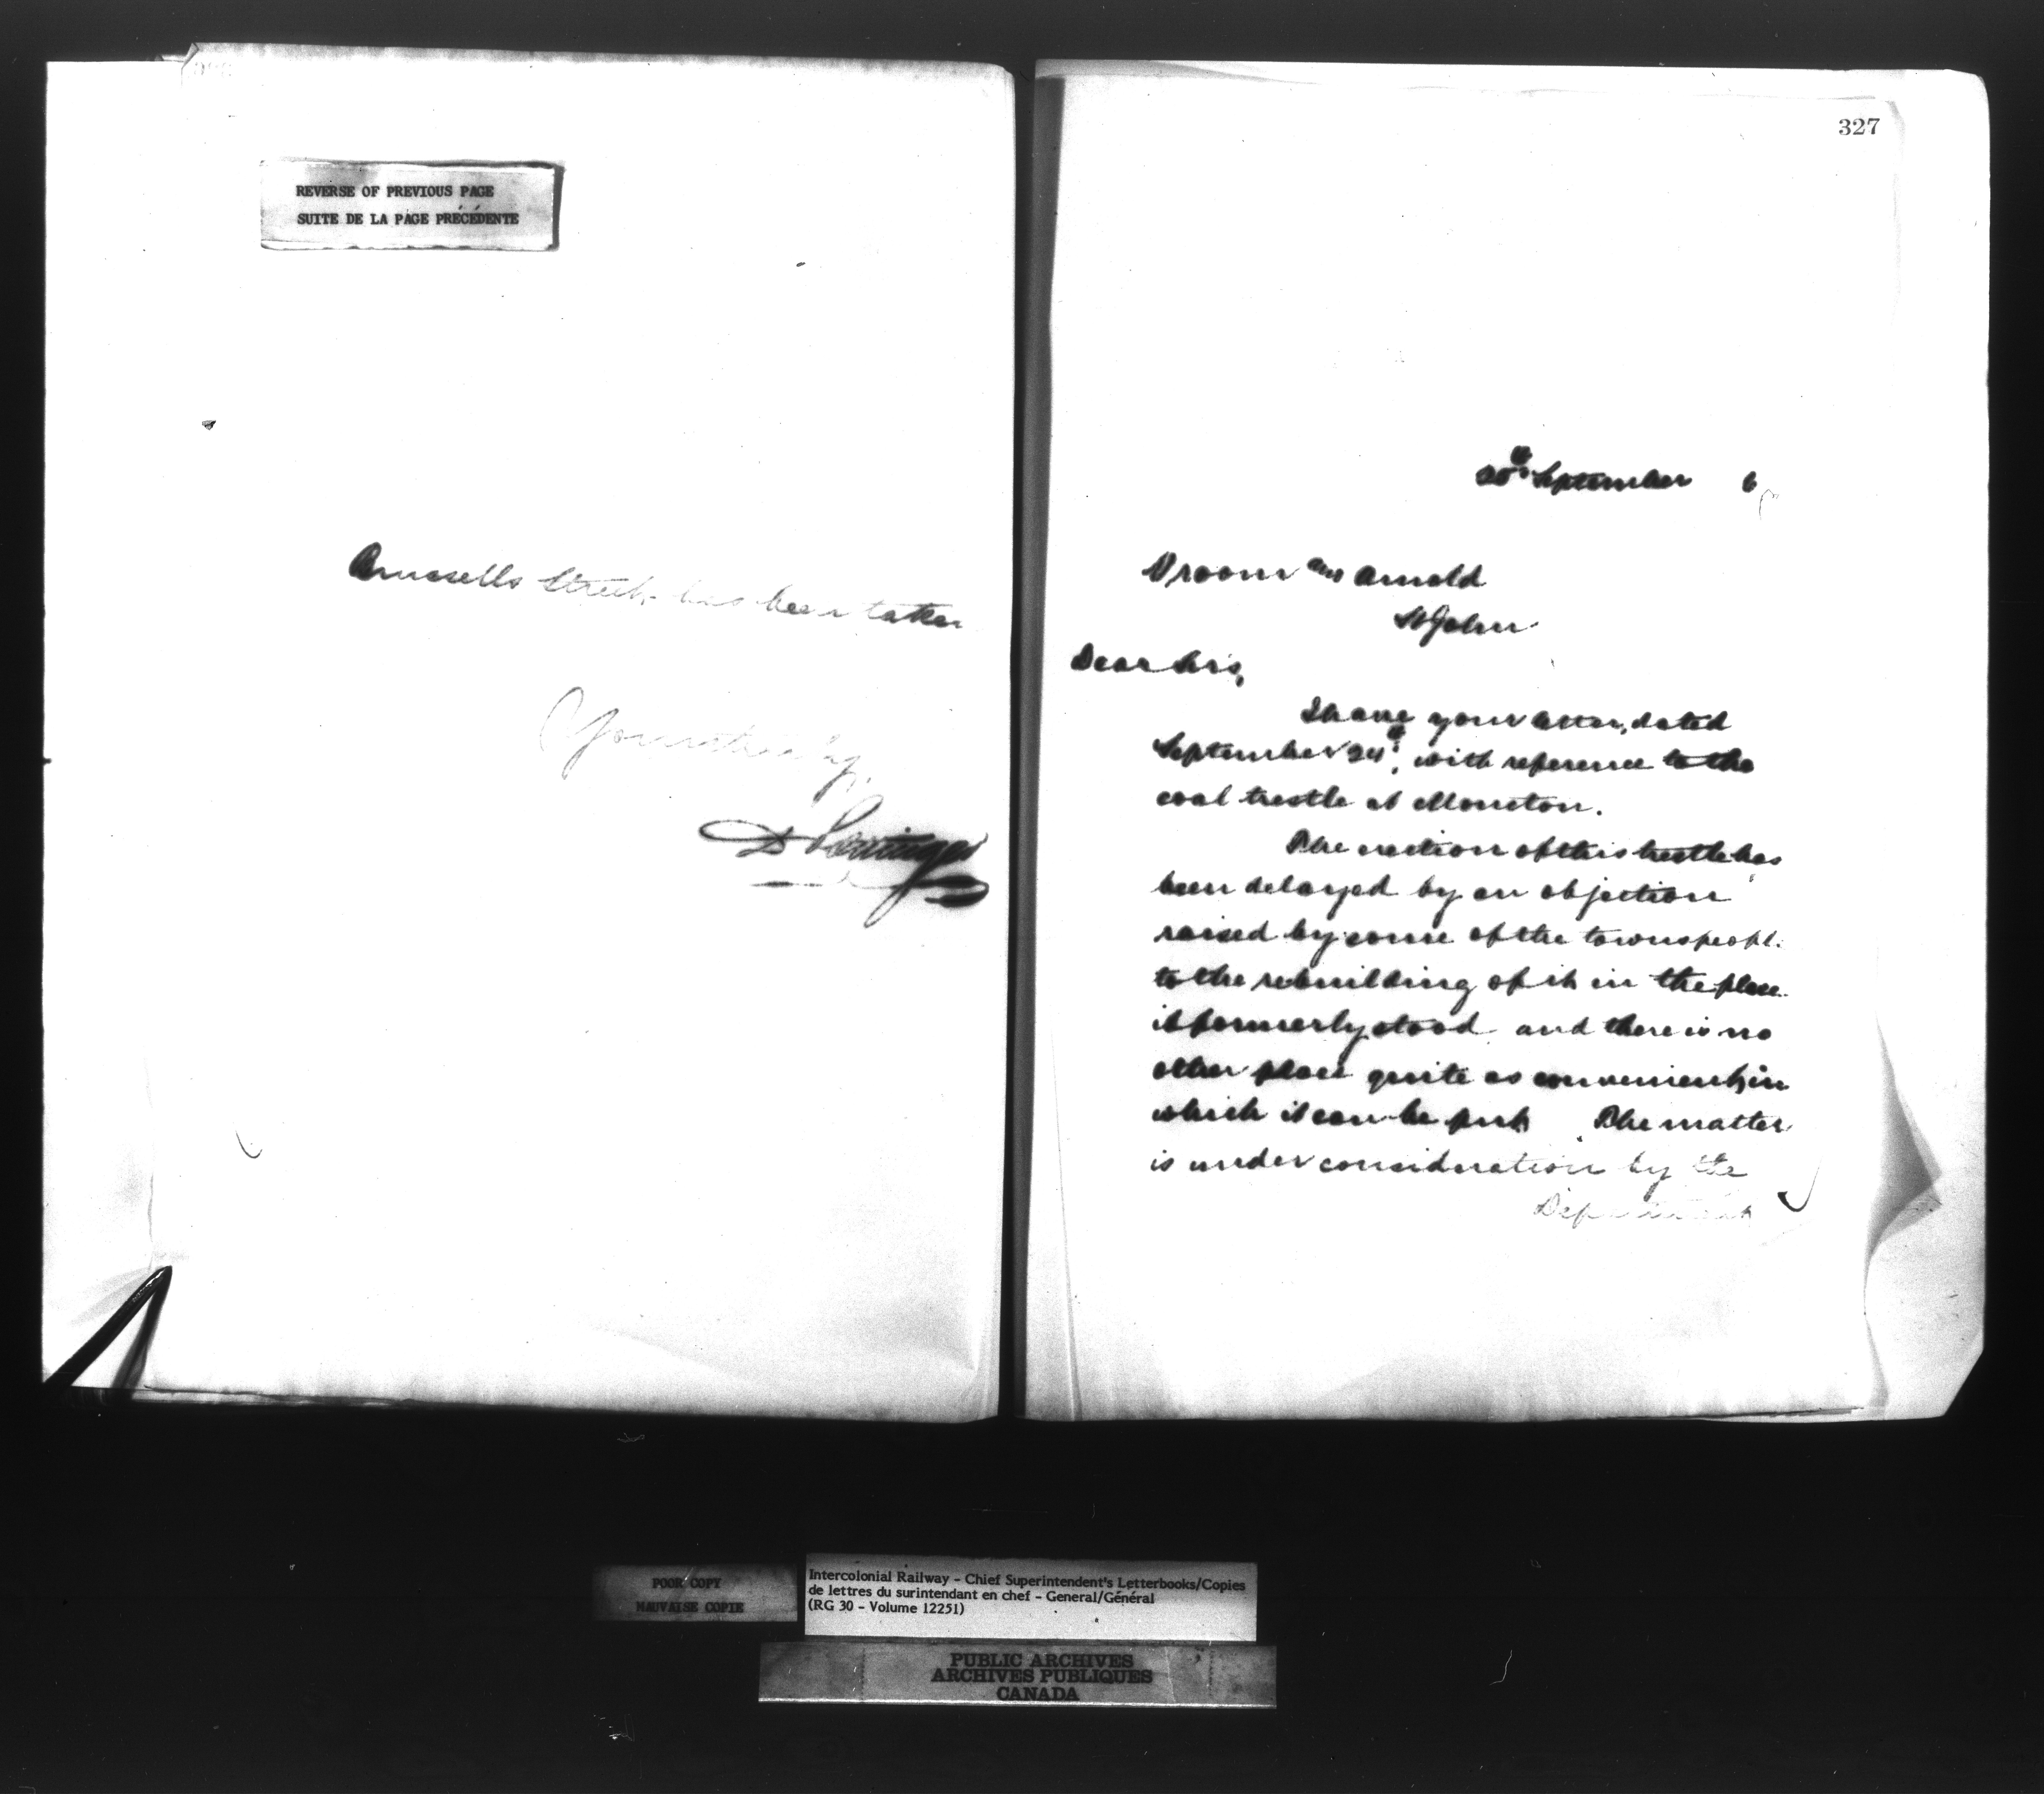 REVERSE OF PREVIOUS PAGE
SUITE DE LA PAGE PRÉCÉDENTE
Brussells Street has been taken
Yours truly,
D Pottinger
327
September 6
Vroom and Arnold
St John
Dear Sirs,
I have your letter, dated
September 24th, with reference to the
coal trestle at Moncton.
The erection of this trestle has
been delayed by an objection
raised by some of the townspeople
to the rebuilding of it in the place
it formerly stood and there is no
other place quite as convenient, in
which it can be put. The matter
is under consideration by the
Department
POOR COPY
MAUVAISE COPIE
Intercolonial Railway - Chief Superintendent's Letterbooks/Copies
de lettres du surintendant en chef - General/Général
(RG 30 - Volume 12251)
PUBLIC ARCHIVES
ARCHIVES PUBLIQUES
CANADA